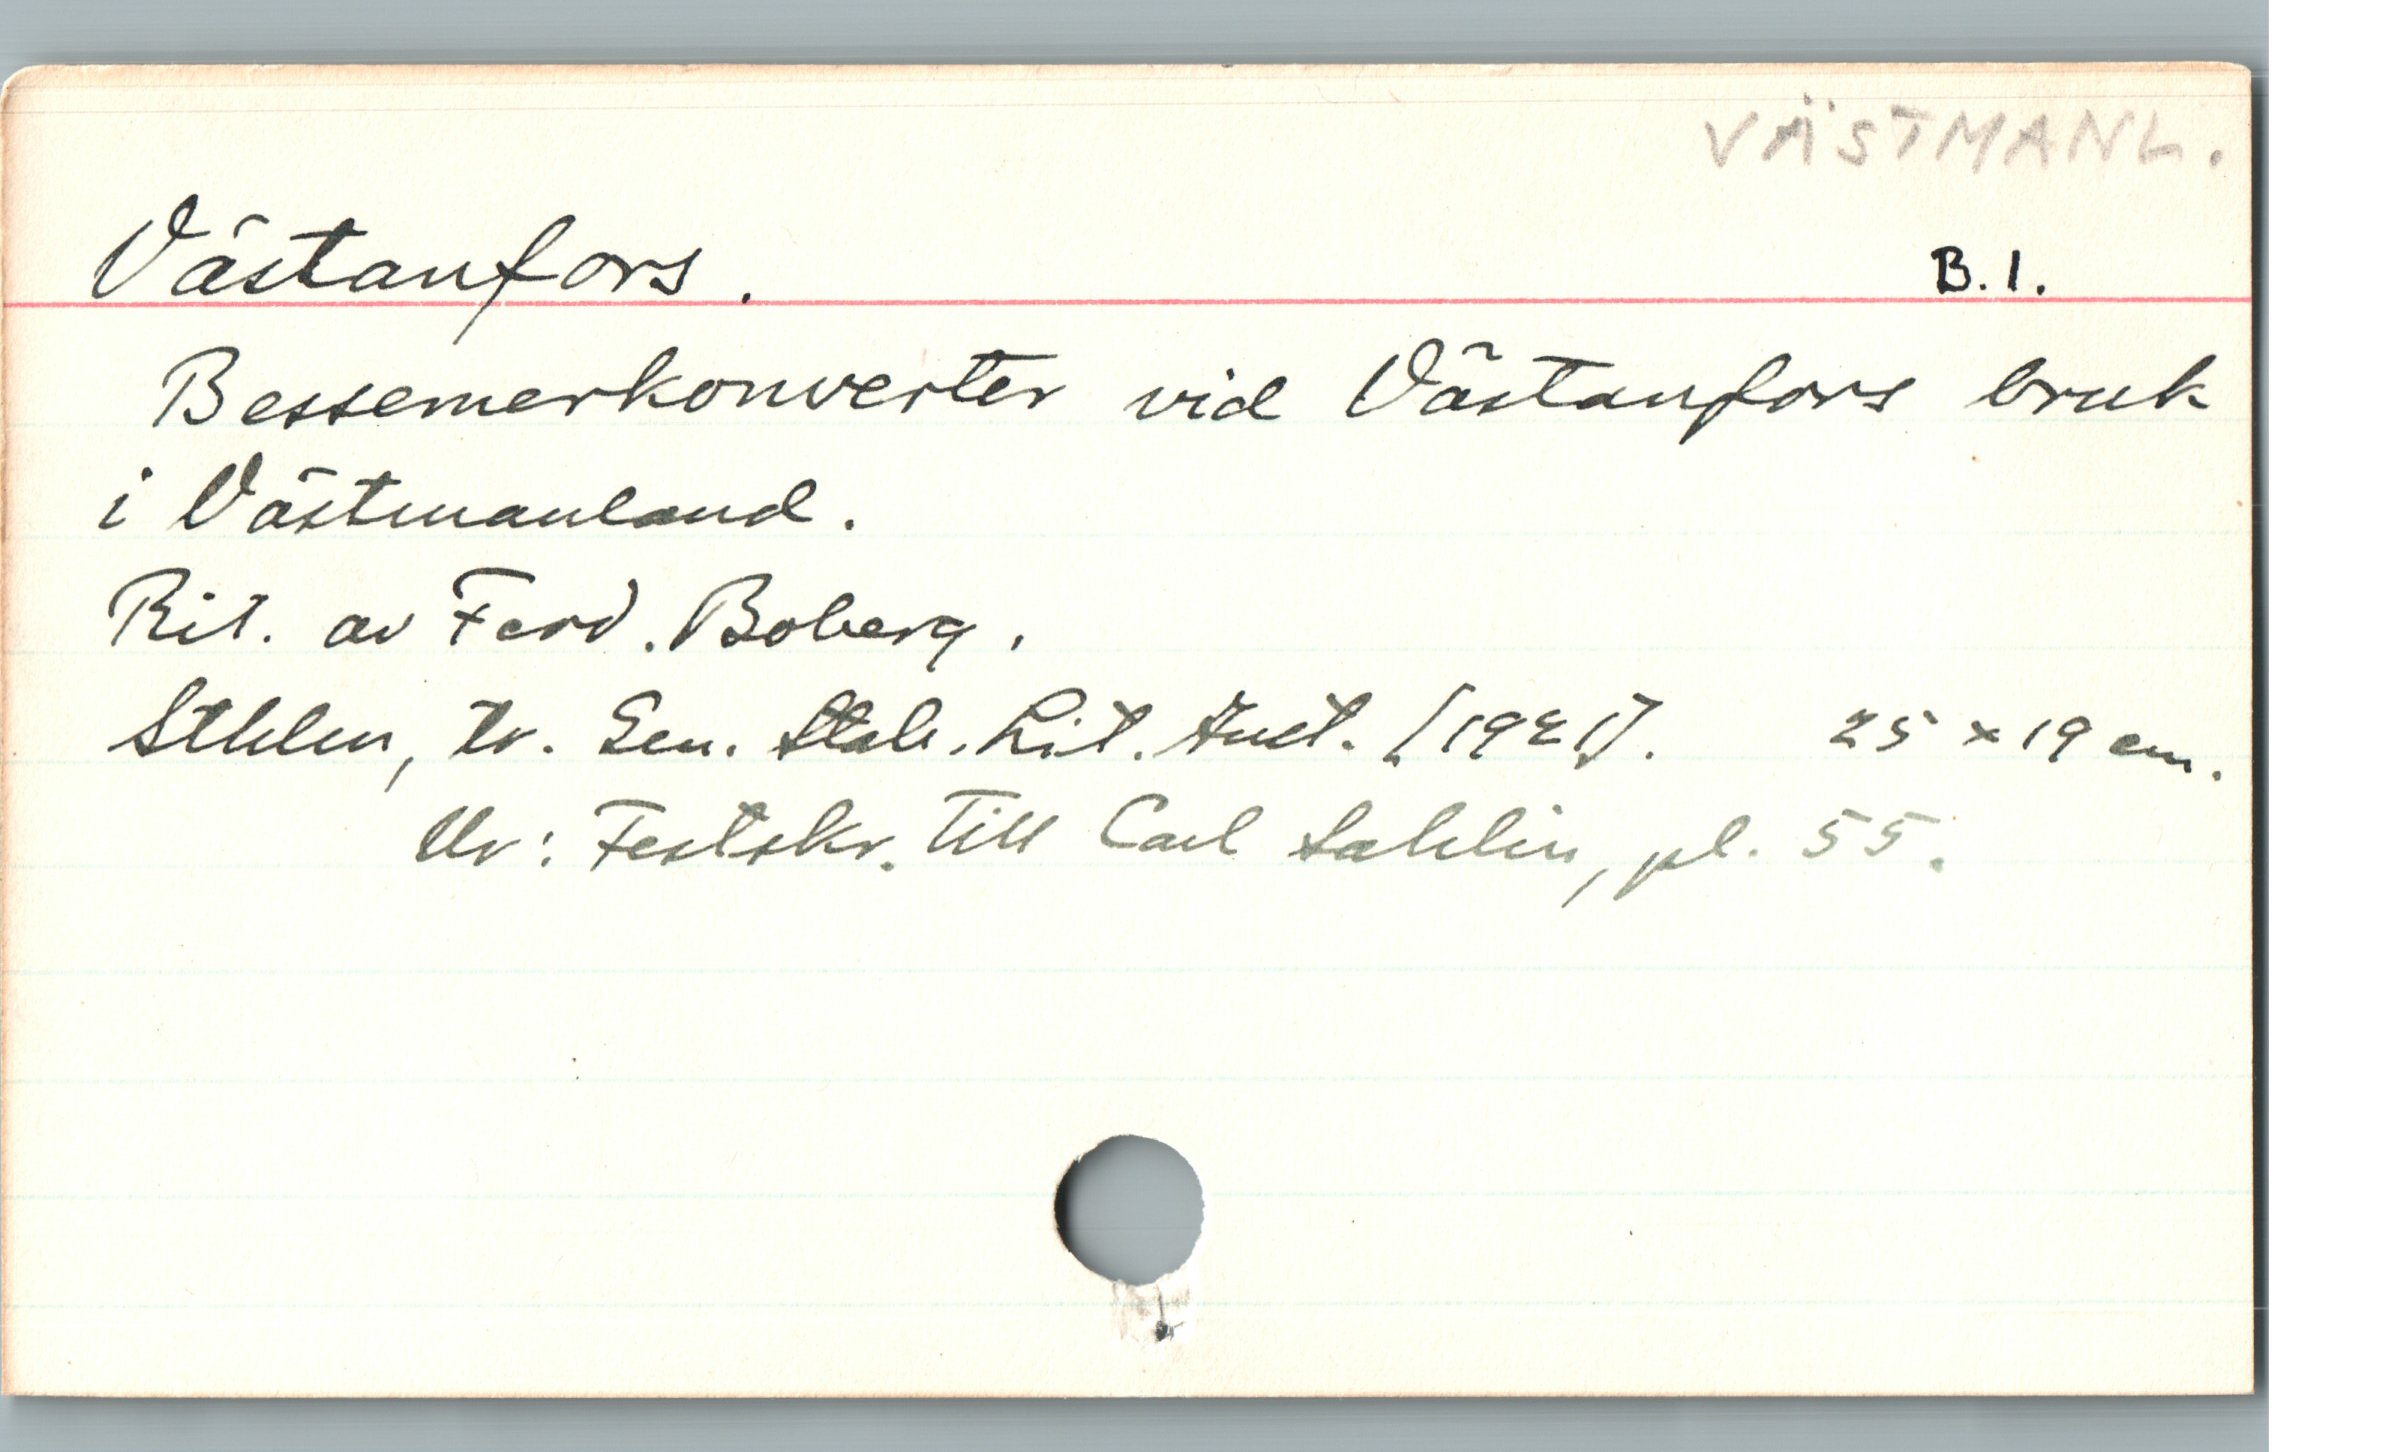 VÄSTMANL.
Västanfors. B. 1.
Bessemerkonverter vid Västanfors bruk
i Västmanland.
Rit. av Ferd. Boberg.
Sthlm, tr. Gen. Stab. Lit. Anst. [1921]. 25 x 19 cm.
Ur: Festskr. till Carl Sahlin, pl. 55.